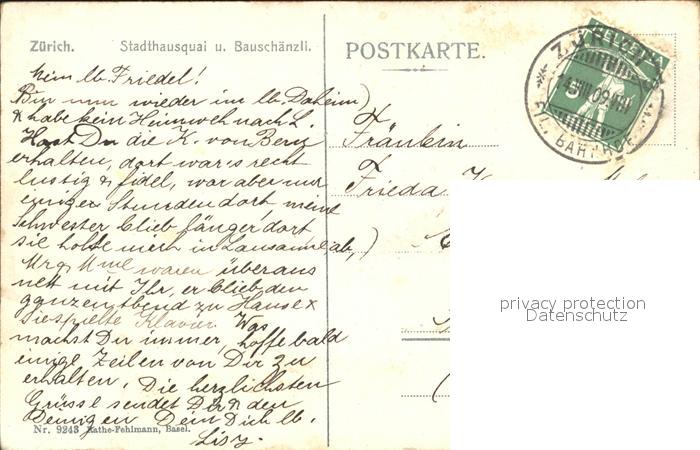 Zürich. Stadthausquai u. Bauschänzli.
POSTKARTE.
HELVETIA
ZÜRICH
Mein lb. Friedel!
Bin nun wieder im lb. Daheim)
& habe kein Heimweh nach L.
Hast Du die K. von Berg
erhalten, dort war's recht
lustig & fidel, war aber nur
einige Stunden dort, meine
Schwester blieb länger dort
sie holte mich in Lausanne ab,)
Mr & Mme waren überaus
nett mit Ihr, er blieb den
ganzen Abend zu Hause &
Sie spielte Klavier. Was
machst Du immer, hoffe bald
einige Zeilen von Dir zu
erhalten. Die herzlichsten
Grüsse sendet Dir & den
Deinigen Dein Dich lb.
Lisy.
Fräulein
Frieda
privacy protection
Datenschutz
Nr. 9243 Rathe-Fehlmann, Basel.